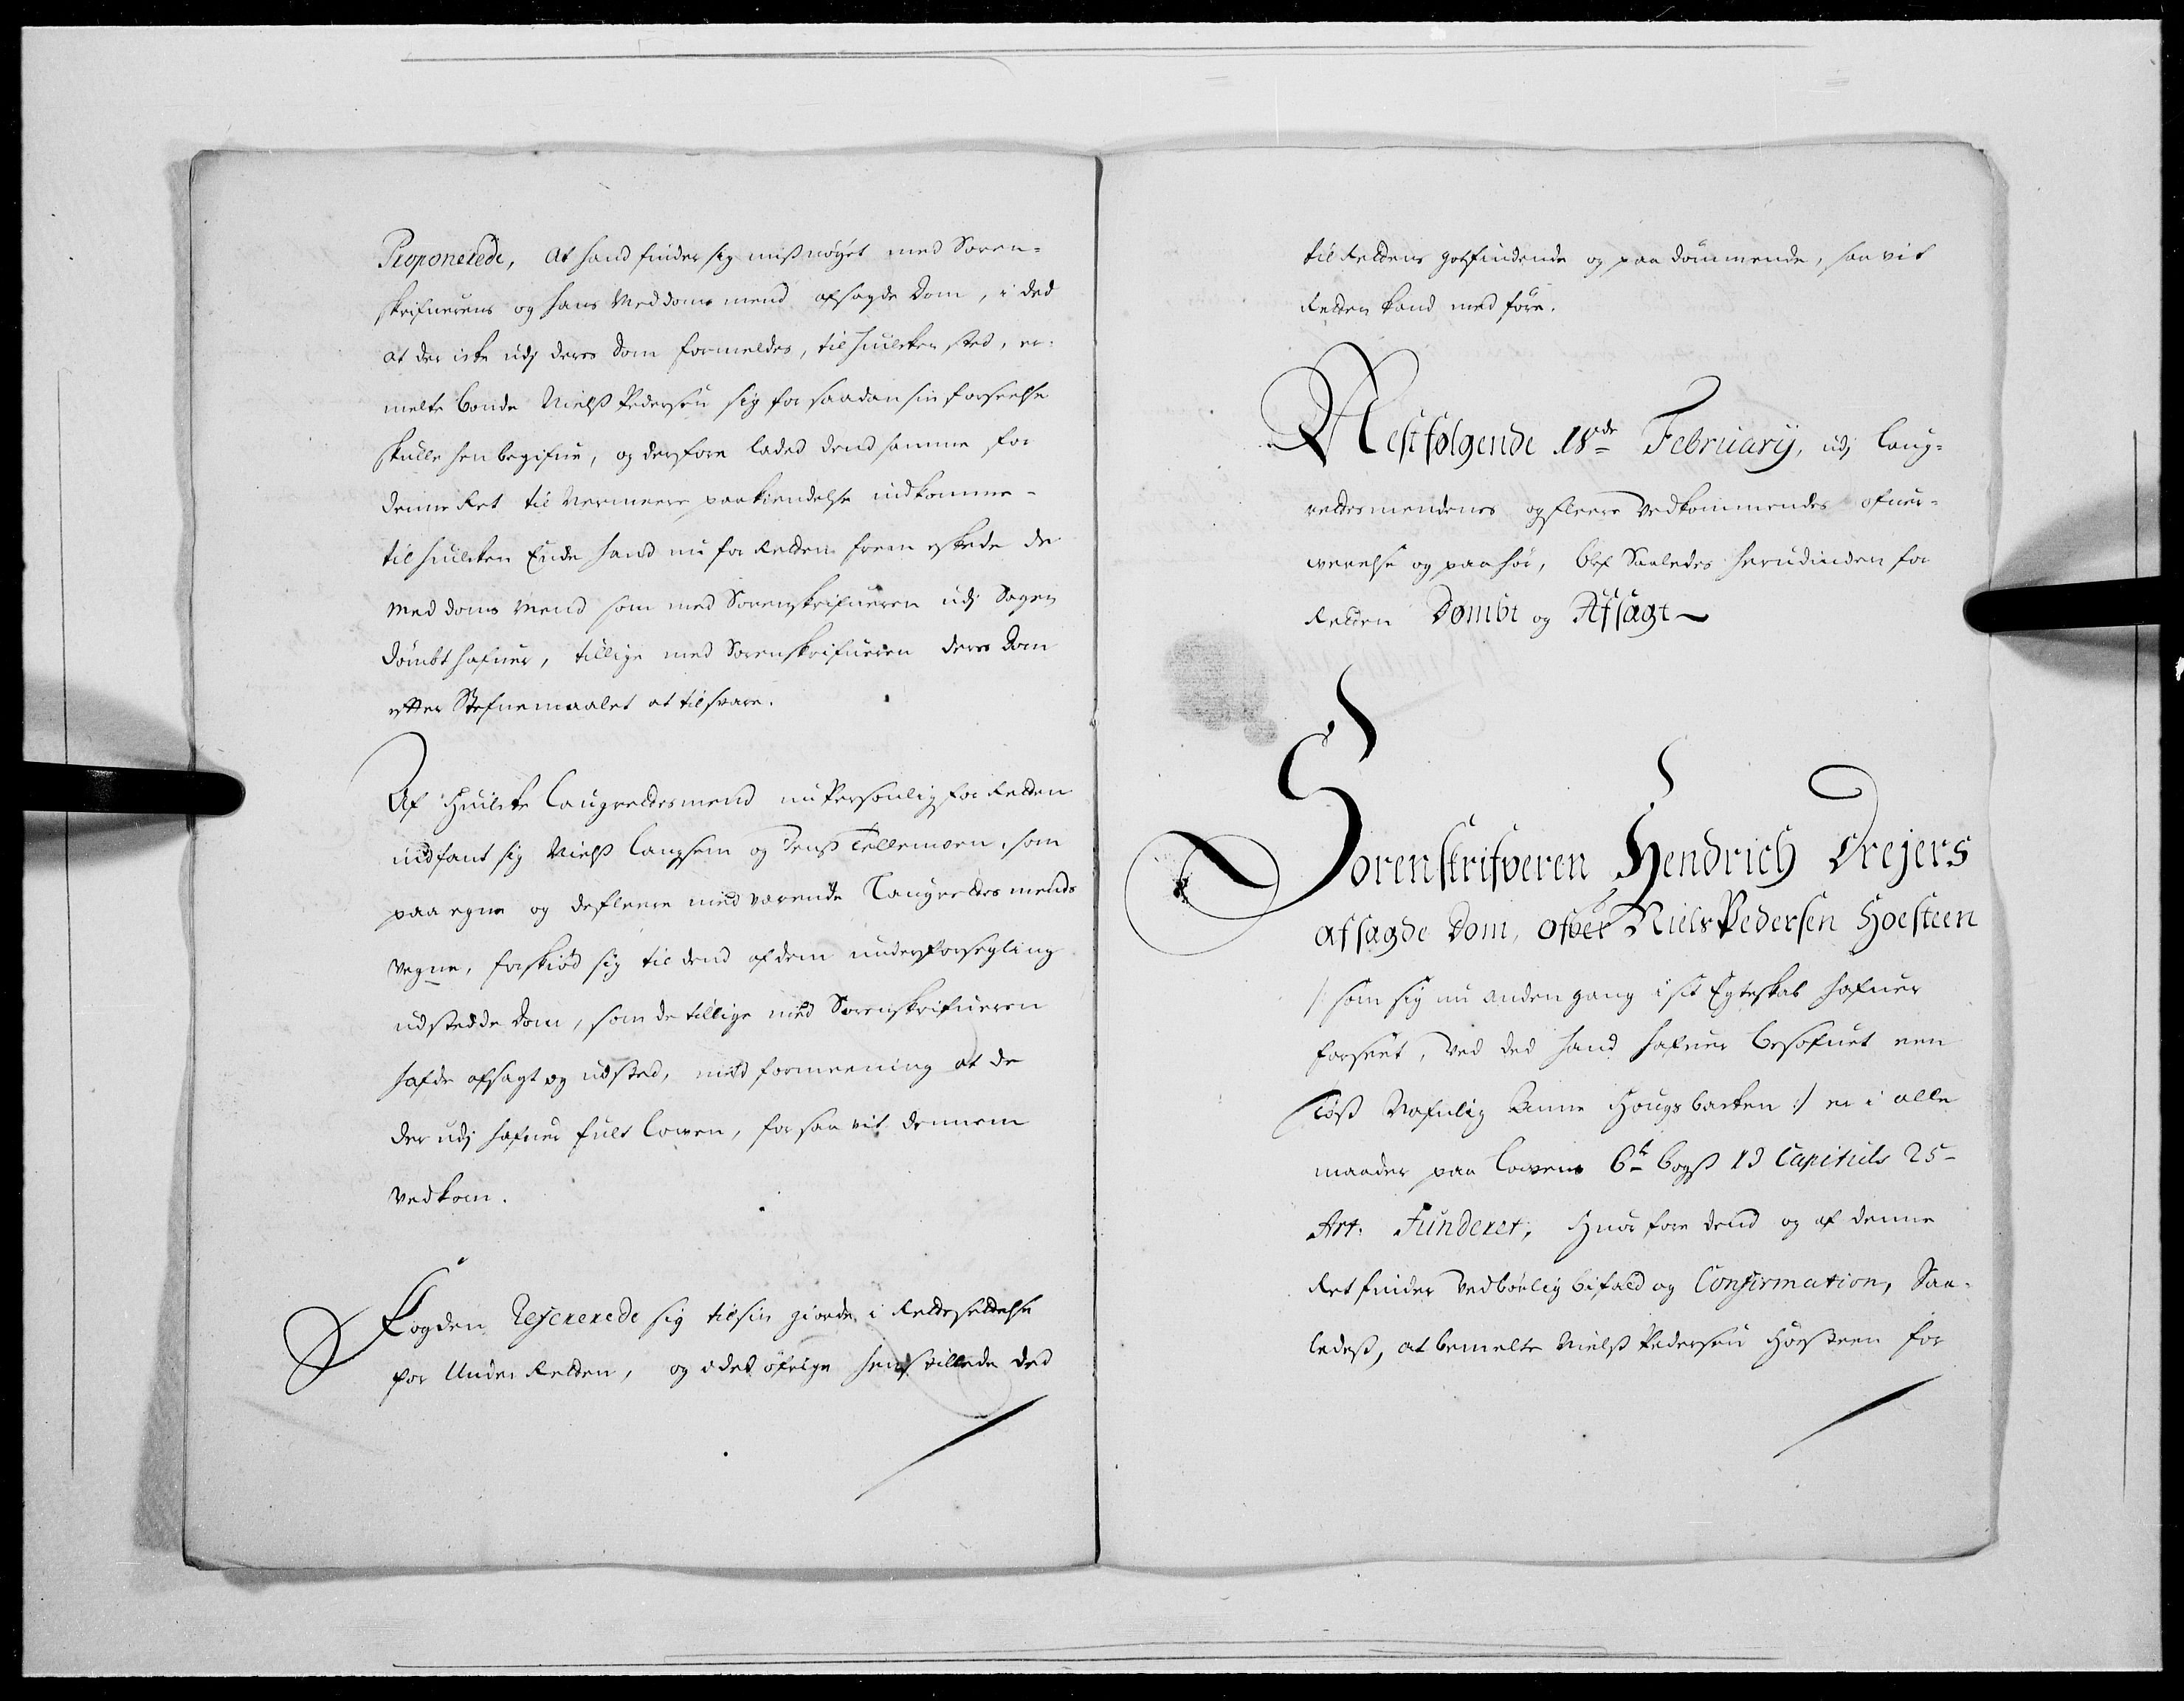 Proponerede, at hand finder sig misnøyet med Soren-
skrifuerens og hans Meddoms mend afsagde Dom, i ded
at der icke udj deres Dom formeldes, til huilcken sted, er-
melte bonde Nielß Pedersen sig for saadan sin forseelse
skulle hen begifue, og derfore lader dend samme for
denne Ret til Nermeere paakiendelse indkomme-
til huilcken Ende hand nu for Retten frem eskede de
Med doms Mend som med Sorenskrifueren udj Sagen
dømbt hafuer, tillige med Sorenskrifueren deres Dom
efter Stefnemaalet at tilsvare.
Af Huilcke Laugrettesmend nu Personlig for Retten
indfant sig Nielß Langsem og Jens Tellemoen, som
paa egne og de fleere med værende Laugrettes mends
Vegne, forskiød sig til dend af dem under forsegling
udstedde Dom, som de tillige med Sorenskrifueren
hafde afsagt og udsted, med formeening at de
der udj hafuer fult Lowen, for saa vit dennem
vedkom.
Fogden Refererede sig til sin giorde i Rettesettelse
for Under Retten, og i det øfrige henstillede ded
til Rettens gotfindende og paa dømmende, saa vit
Retten kand med føre.
Nestfølgende 18de February, udj Laug-
rettesmendenes og fleere Vedkommendes ofuer-
werelse og paahør, blef Saaledes herudinden for
Retten Dømbt og Afsagt
Sorenskrifveren Hendrich Drejers
afsagde Dom, ofver Niels Pedersen Hoesteen
/: som sig nu anden gang i sit Egteskab hafuer
forseet, ved ded hand hafuer besofuet een
Tøß Nafnlig Anne Hougsbacken :/ er i alle
maader paa Lowens 6te Bogs 13 Capituls 25-
Art: Funderet, Huor fore dend og af denne
Ret finder vedbørlig bifald og Confirmation, Saa-
ledeß, at bemelte Nielß Pedersen Hoesteen for